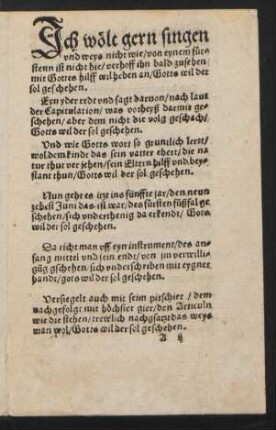 Ich wölt gern singen
vnd weys nicht wie/ von eynem für⸗
stenn ist nicht hie/ verhoff ihn bald zusehen/
mit Gottes hilff wil heben an/ Gotts wil der
sol geschehen.
Eyn yder redt vnd sagt daruon/ nach laut
der Capitulation/ was vorheyst daemit ge⸗
schehen/ aber dem nicht die volg geschach/
Gotts wil der sol geschehen.
Vnd wie Gotts wort so gruntlich leret/
wol dem kinde das sein vatter ehert/ die na
thur ver jehen/ sein Eltern hilff vnd bey⸗
stant thun/ Gotts wil der sol geschehen.
Nun geht es itzt ins fünffte jar/ den neun
zehest Juni das ist war/ des fürsten füßfal ge
schehen/ sich vnderthenig da erkendt/ Gots
wil der sol geschehen.
Da richt man vff eyn instrument/ des an⸗
fang mittel vnd sein endt/ von jm verwilli⸗
gūg gschehen/ sich vnderschriben mit eygner
handt/ gots wil der sol geschehen.
Versiegelt auch mit seim pitschier/ dem
nachgefolgt mit höchster gier/ den Articuln
wie die stehen/ trewlich nachgsatzt das weys
man wol/ Gotts wil der sol geschehen.
A ij